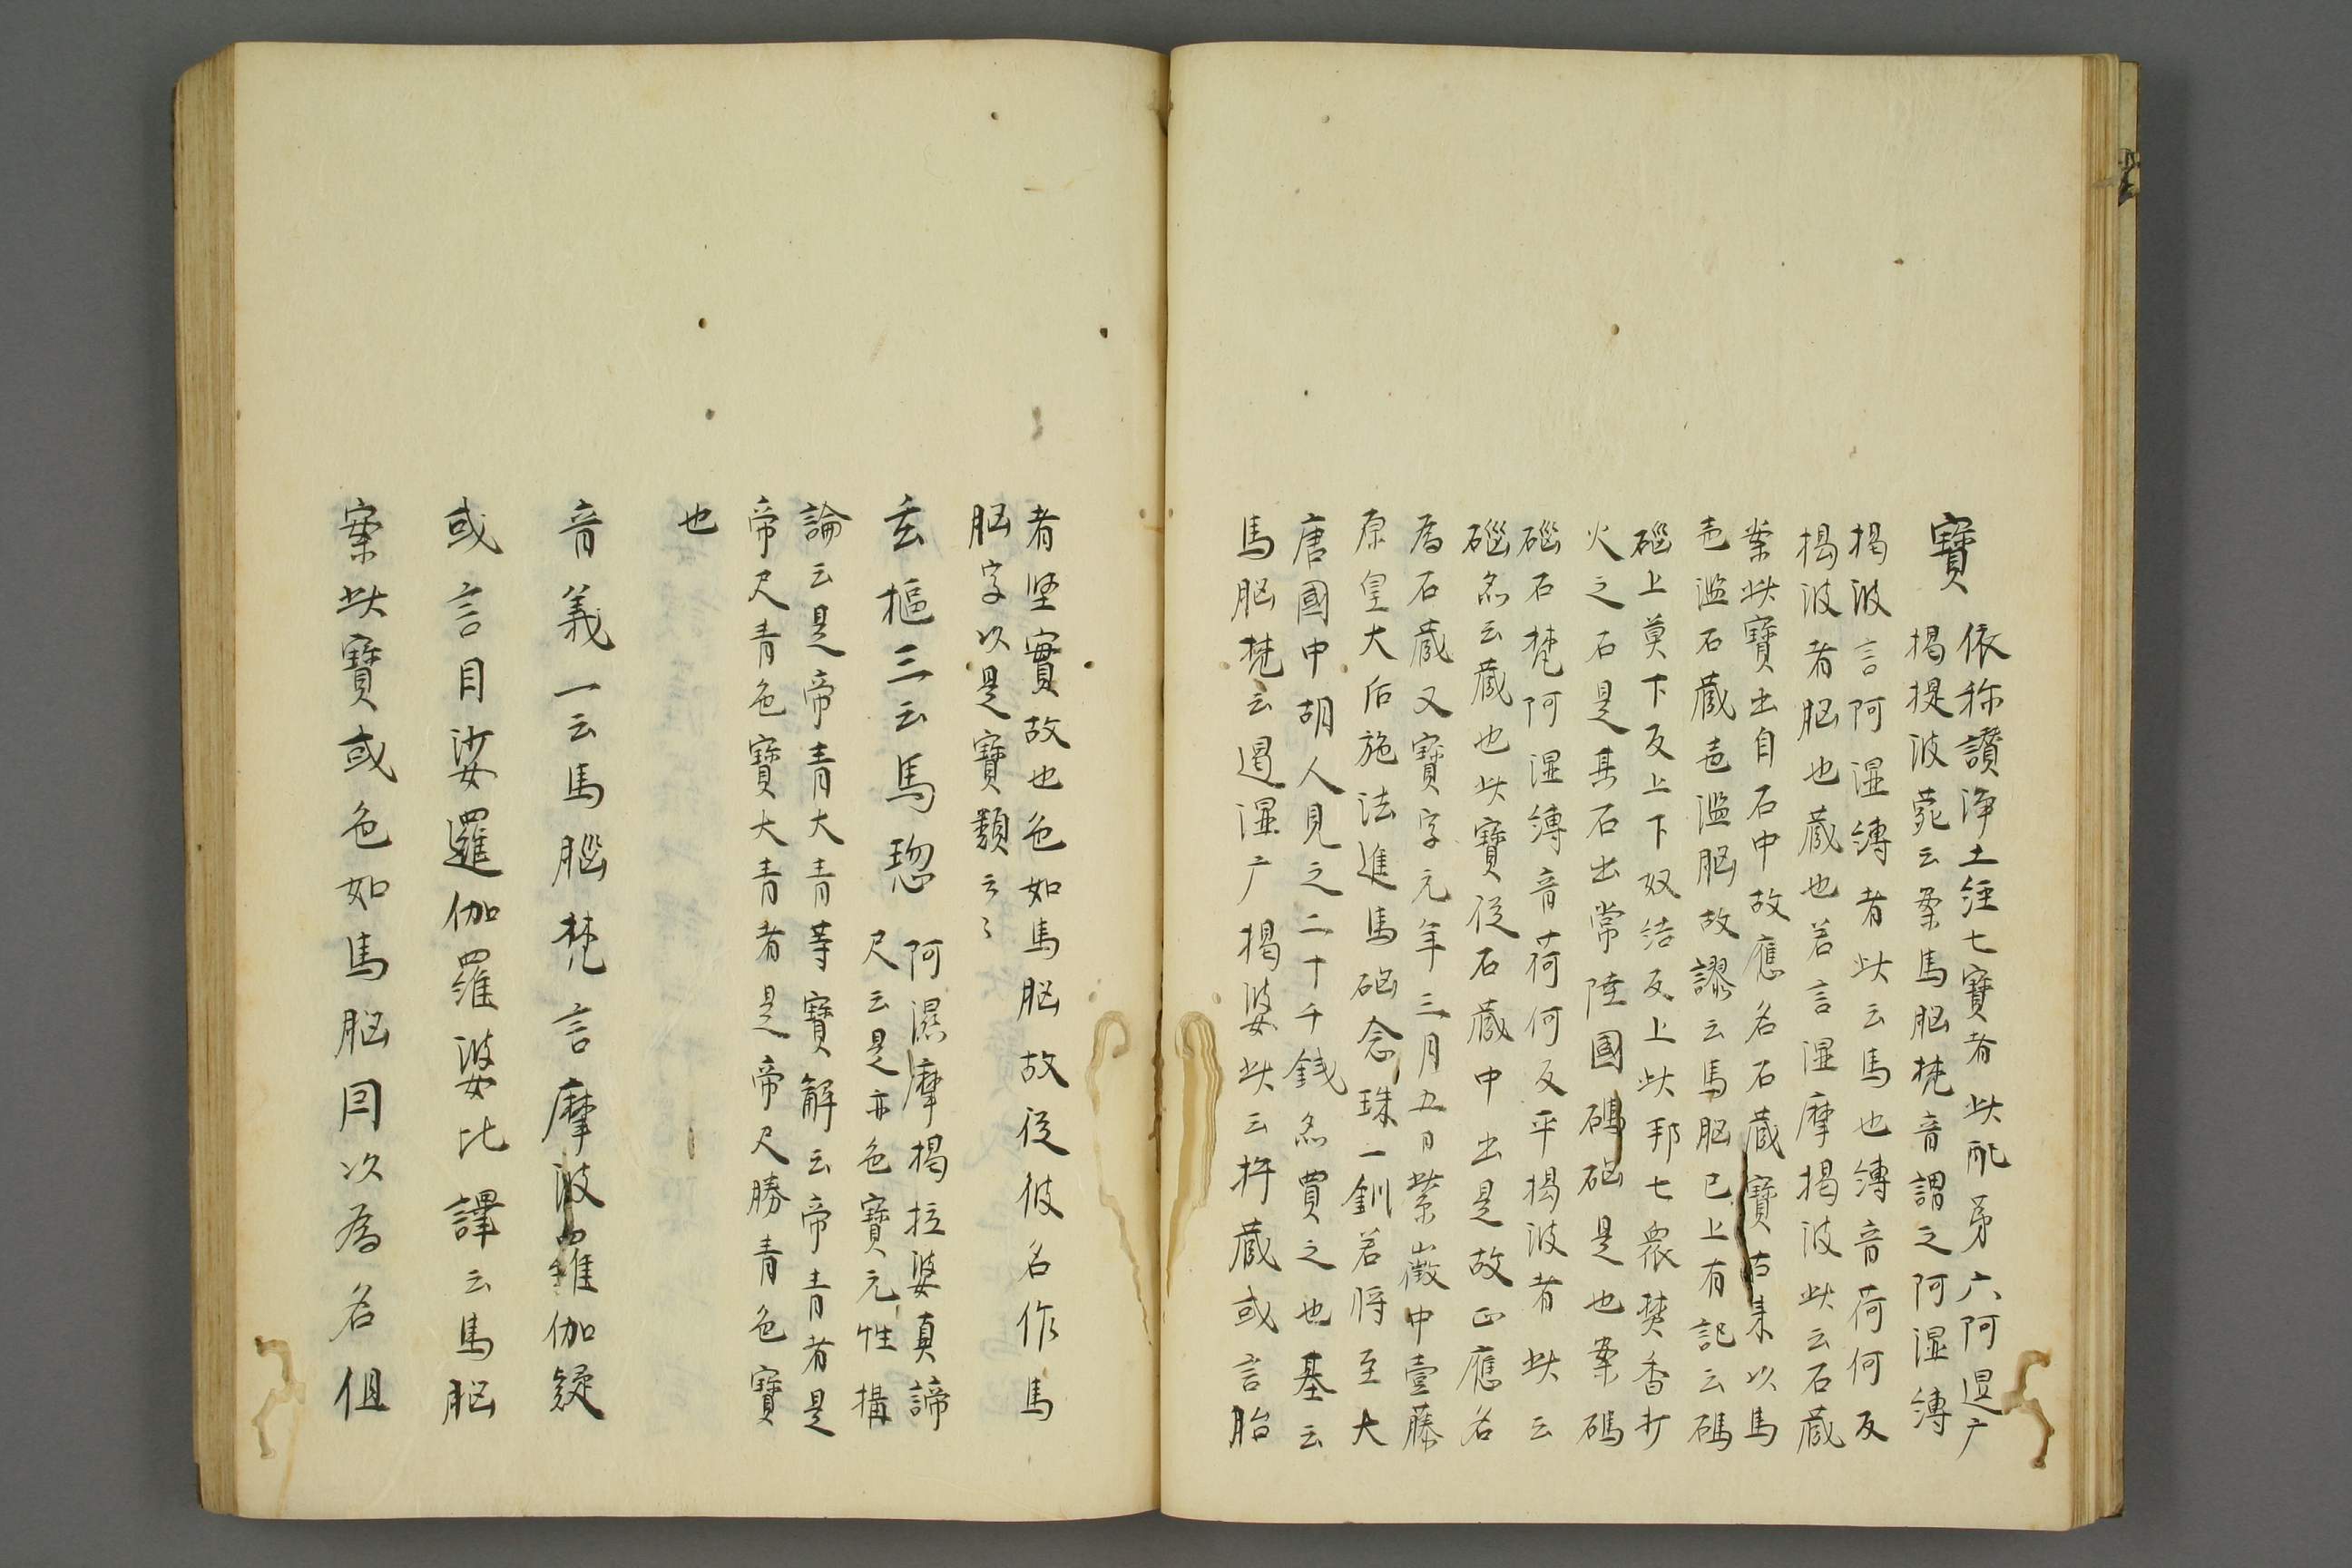 寶
依称讃浄土経七寶者此配苐六阿湿广
揭提波菀云案馬脳梵音謂之阿湿縛
揭波言阿湿縛者此云馬也縛音荷何反
揭波者脳也蔵也若言湿摩揭波此云石蔵
案此寶出自石中故應名石蔵寶古来以馬
壱濫石蔵壱濫脳故謬云馬脳已上有記云碼
碯上莫下反上下奴結反上此邦七衆焚香打
火之石是其石出常陸國碼碯是也案碼
碯石梵阿湿縛音荷何反平揭波者此云
碯名云蔵也此寶從石蔵中出是故正應名
為石蔵又寶字元年三月五日紫微中臺藤
原皇大后施法進馬碯念珠一釧若将至大
唐國中胡人見之二十千銭名買之也基云
馬脳梵云遏湿广揭婆此云杵蔵或言胎
者堅實故也色如馬脳故從彼名作馬
脳字以是寶類云〻
玄樞三云馬瑙
阿濕摩揭拉婆真諦
尺云是亦色寶元性攝
論云是帝青大青等寶解云帝青者是
帝尺青色寶大青者是帝尺勝青色寶
也
音義一云馬腦梵言摩波羅伽𨽻
或言目娑邏伽羅婆比譯云馬脳
案此寶或色如馬脳囙次為名但